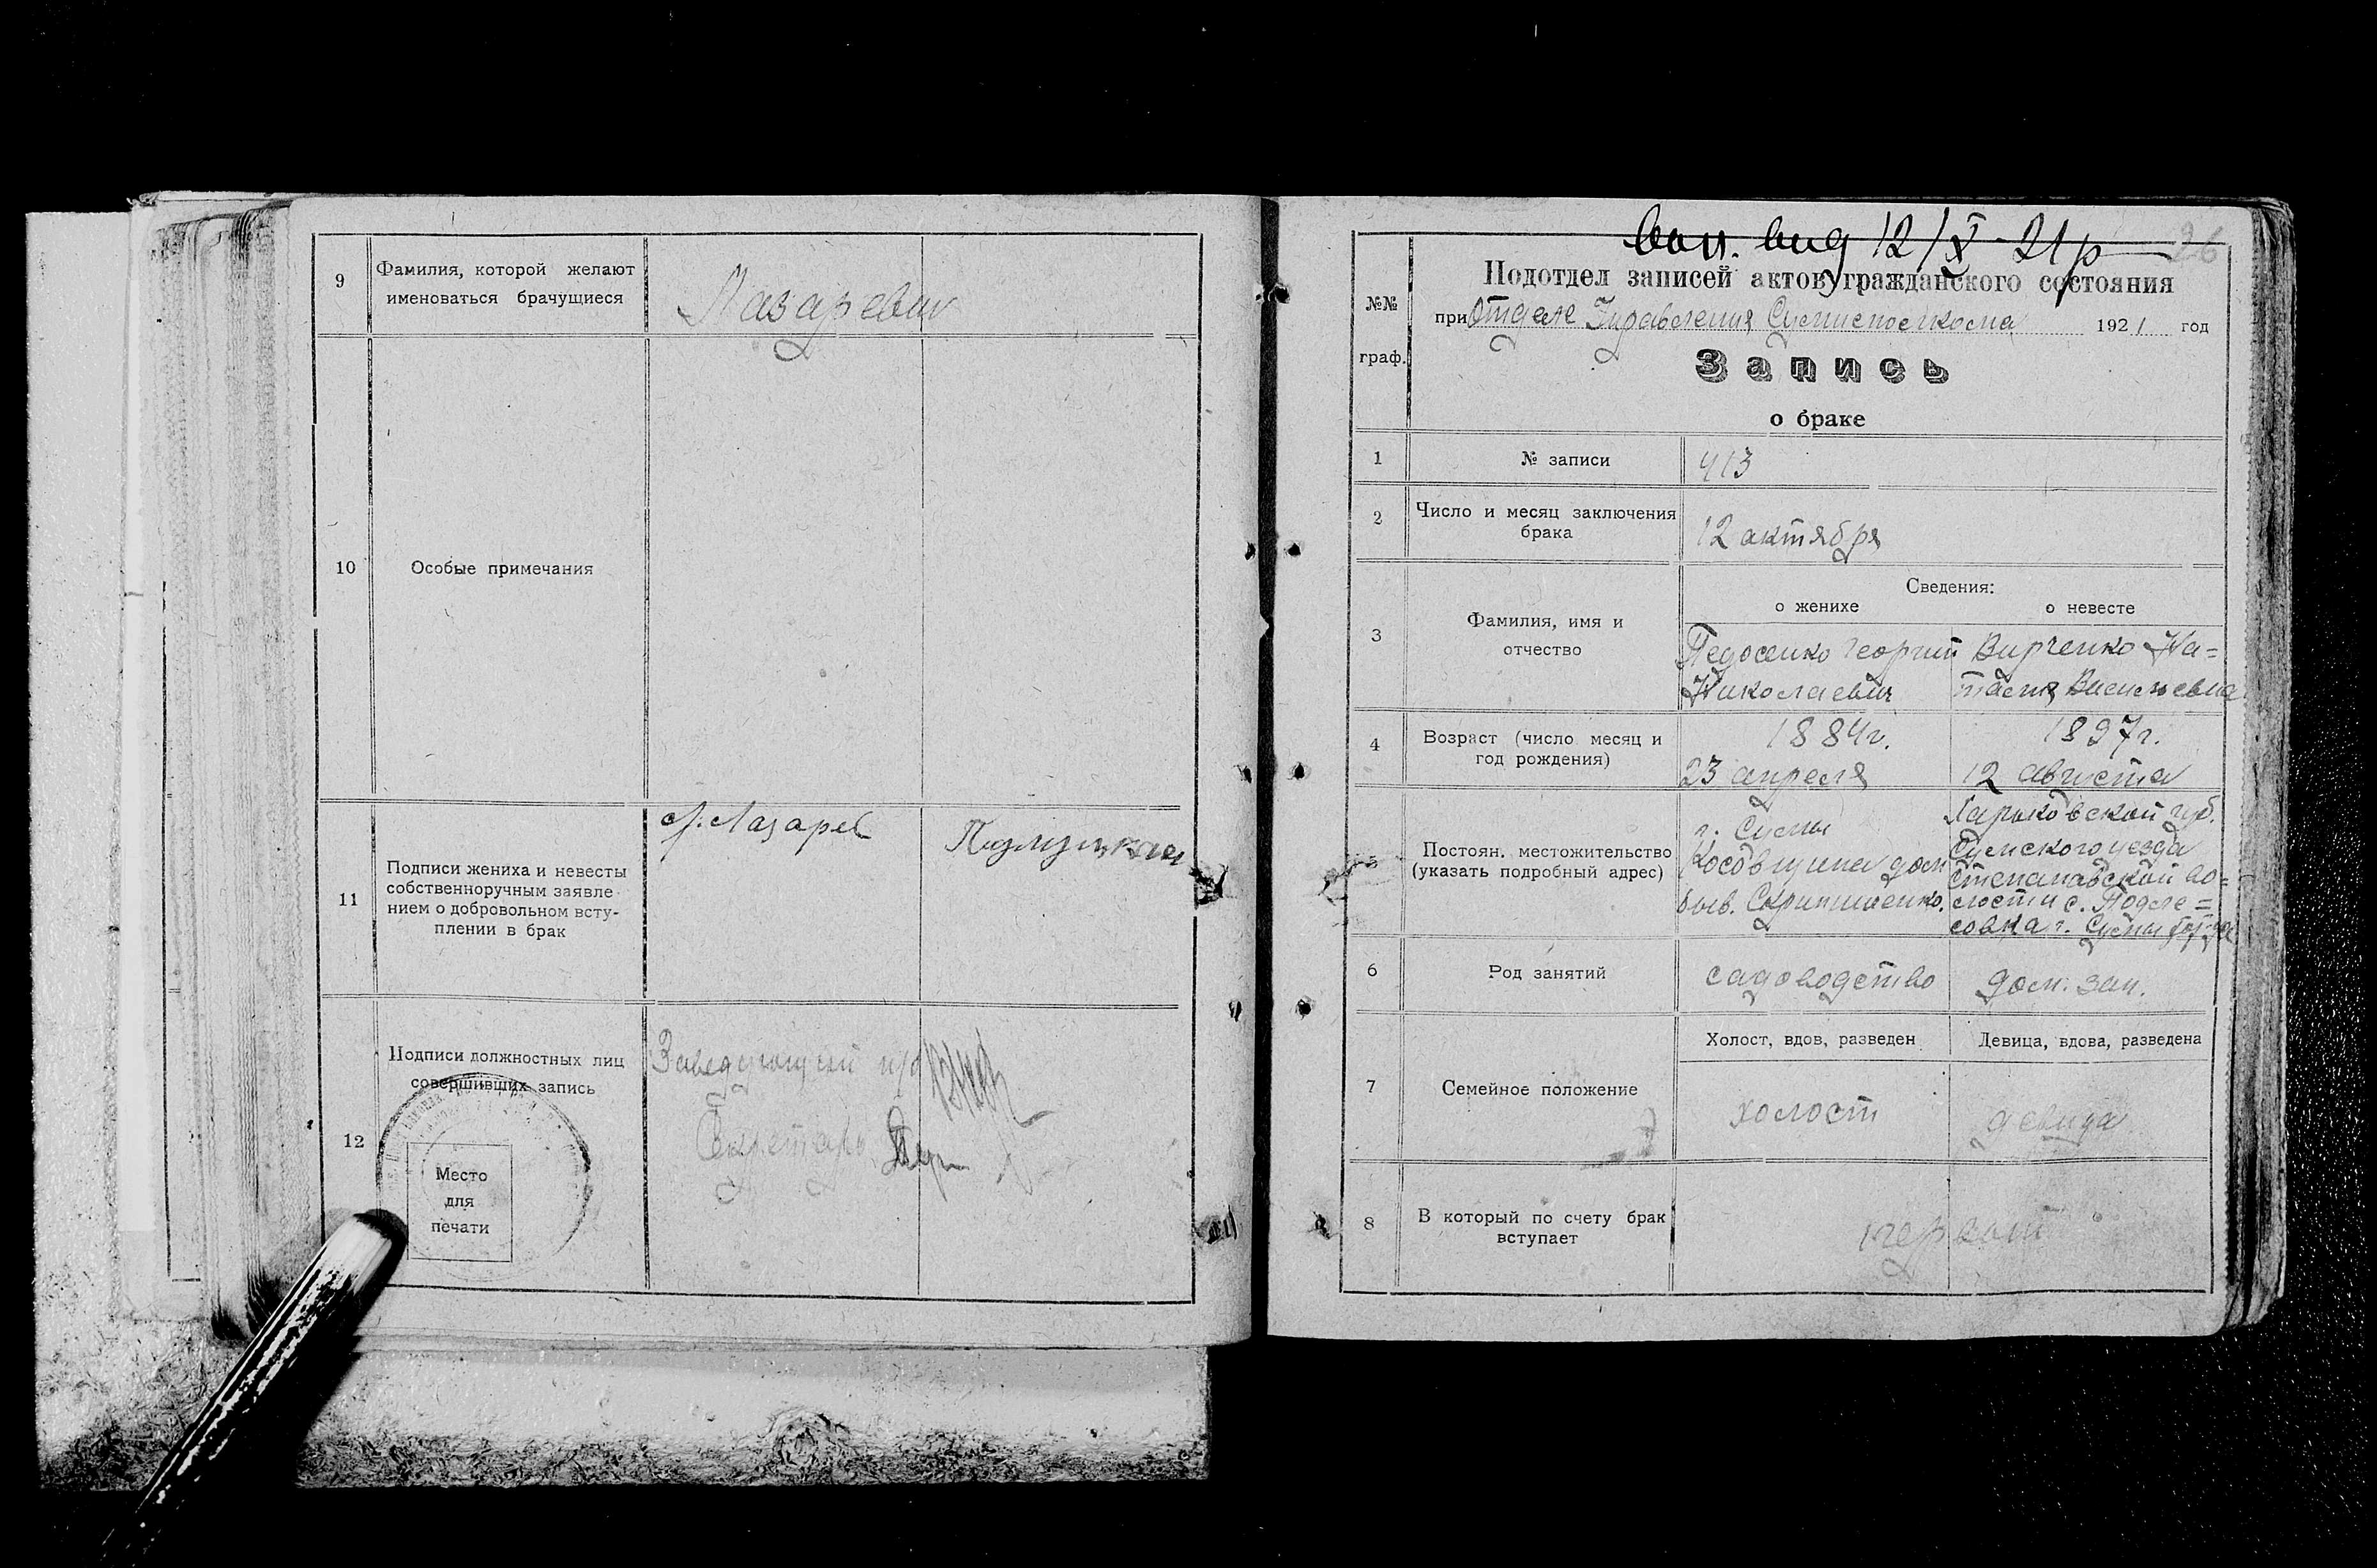 9
Фамилия, которой желают
именоваться брачущиеся
10
Особые примечания
11
Подписи жениха и невесты
собственноручным заявле-
нием о добровольном всту-
плении в брак
Лазарев
12
Подписи должностных лиц
совершивших запись
Место
для
печати
Заведующий п/о
Секретарь
26
12/X 21 р
№№
граф.
Подотдел записей актов гражданского состояния
при Отделе Управления 1921 год
Запись
о браке
1
№ записи
413
2
Число и месяц заключения
брака
12 актября
3
Фамилия, имя и
отчество
Сведения:
о женихе
о невесте
Федосенко Георгий
Николаевич
Вирченко На=
талия Васильевна
4
Возраст (число месяц и
год рождения)
1884г.
23 апреля
1897г.
12 августа
5
Постоян. местожительство
(указать подробный адрес)
г. Сумы
Косовщина дом
быв.
Харьковской губ.
Сумского уезда
Степановской во=
лости с. Подле=
совка г. Сумы
6
Род занятий
садоводство
дом. зан.
7
Семейное положение
Холост, вдов, разведен
Девица, вдова, разведена
холост
девица
8
В который по счету брак
вступает
первый